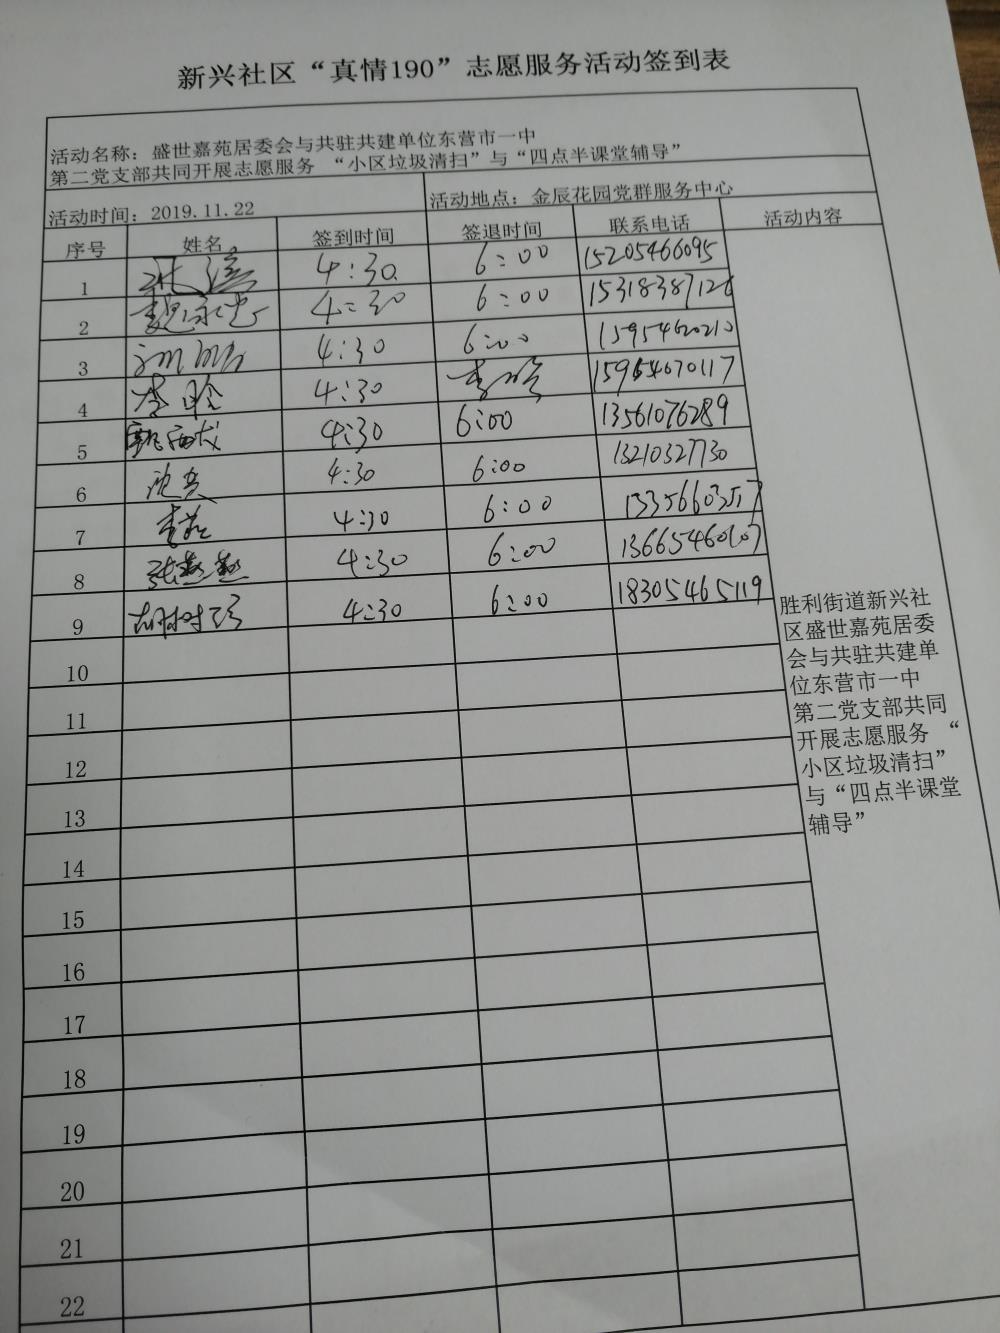 新兴社区“真情190”志愿服务活动签到表
活动名称：盛世嘉苑居委会与共驻共建单位东营市一中
第二党支部共同开展志愿服务 “小区垃圾清扫”与“四点半课堂辅导”
活动时间：2019.11.22 活动地点：金辰花园党群服务中心
序号 姓名 签到时间 签退时间 联系电话 活动内容
1 4:30 6:00 15205466095
2 魏永忠 4:30 6:00 15318387126
3 4:30 6:00 15954620210
4 李晗 4:30 李晗 15964670117
5 4:30 6:00 13561076289
6 4:30 6:00 13210327730
7 李花 4:30 6:00 13356603517
8 张燕燕 4:30 6:00 13665460107
9 胡树强 4:30 6:00 18305465119
10
11
12
13
14
15
16
17
18
19
20
21
22
胜利街道新兴社
区盛世嘉苑居委
会与共驻共建单
位东营市一中
第二党支部共同
开展志愿服务 “
小区垃圾清扫”
与“四点半课堂
辅导”